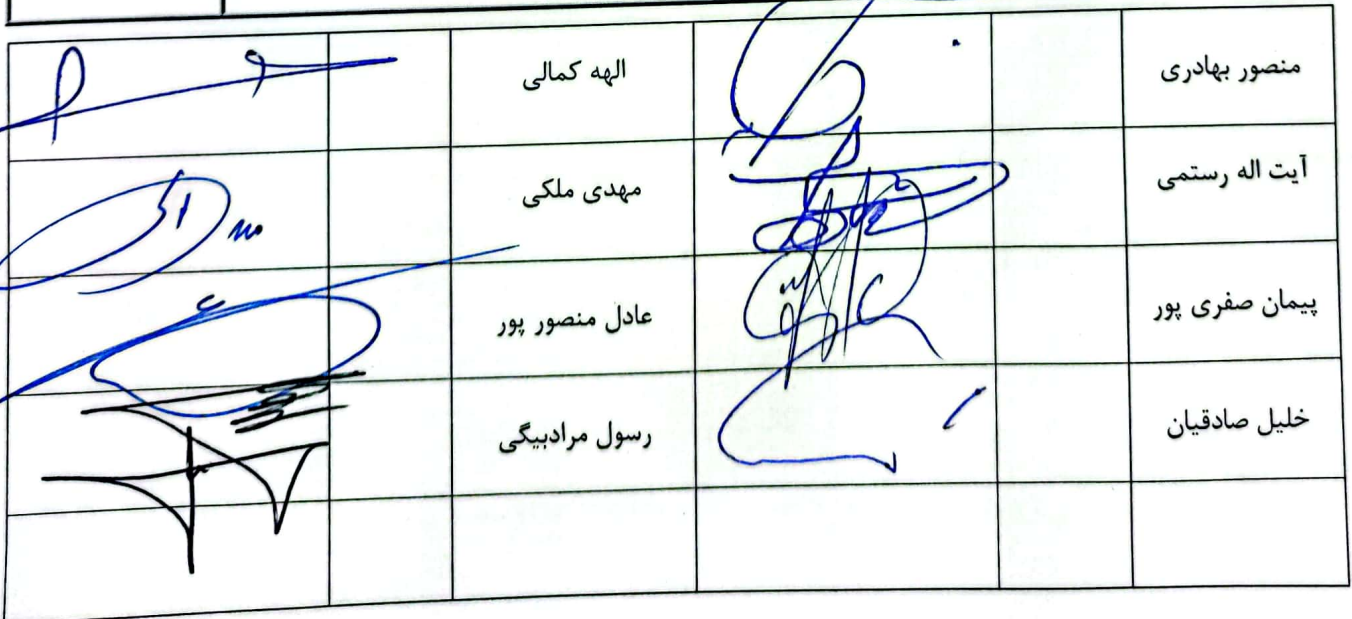 منصور بهادری
الهه کمالی
آیت اله رستمی
مهدی ملکی
پیمان صفری پور
عادل منصور پور
خلیل صادقیان
رسول مرادبیگی